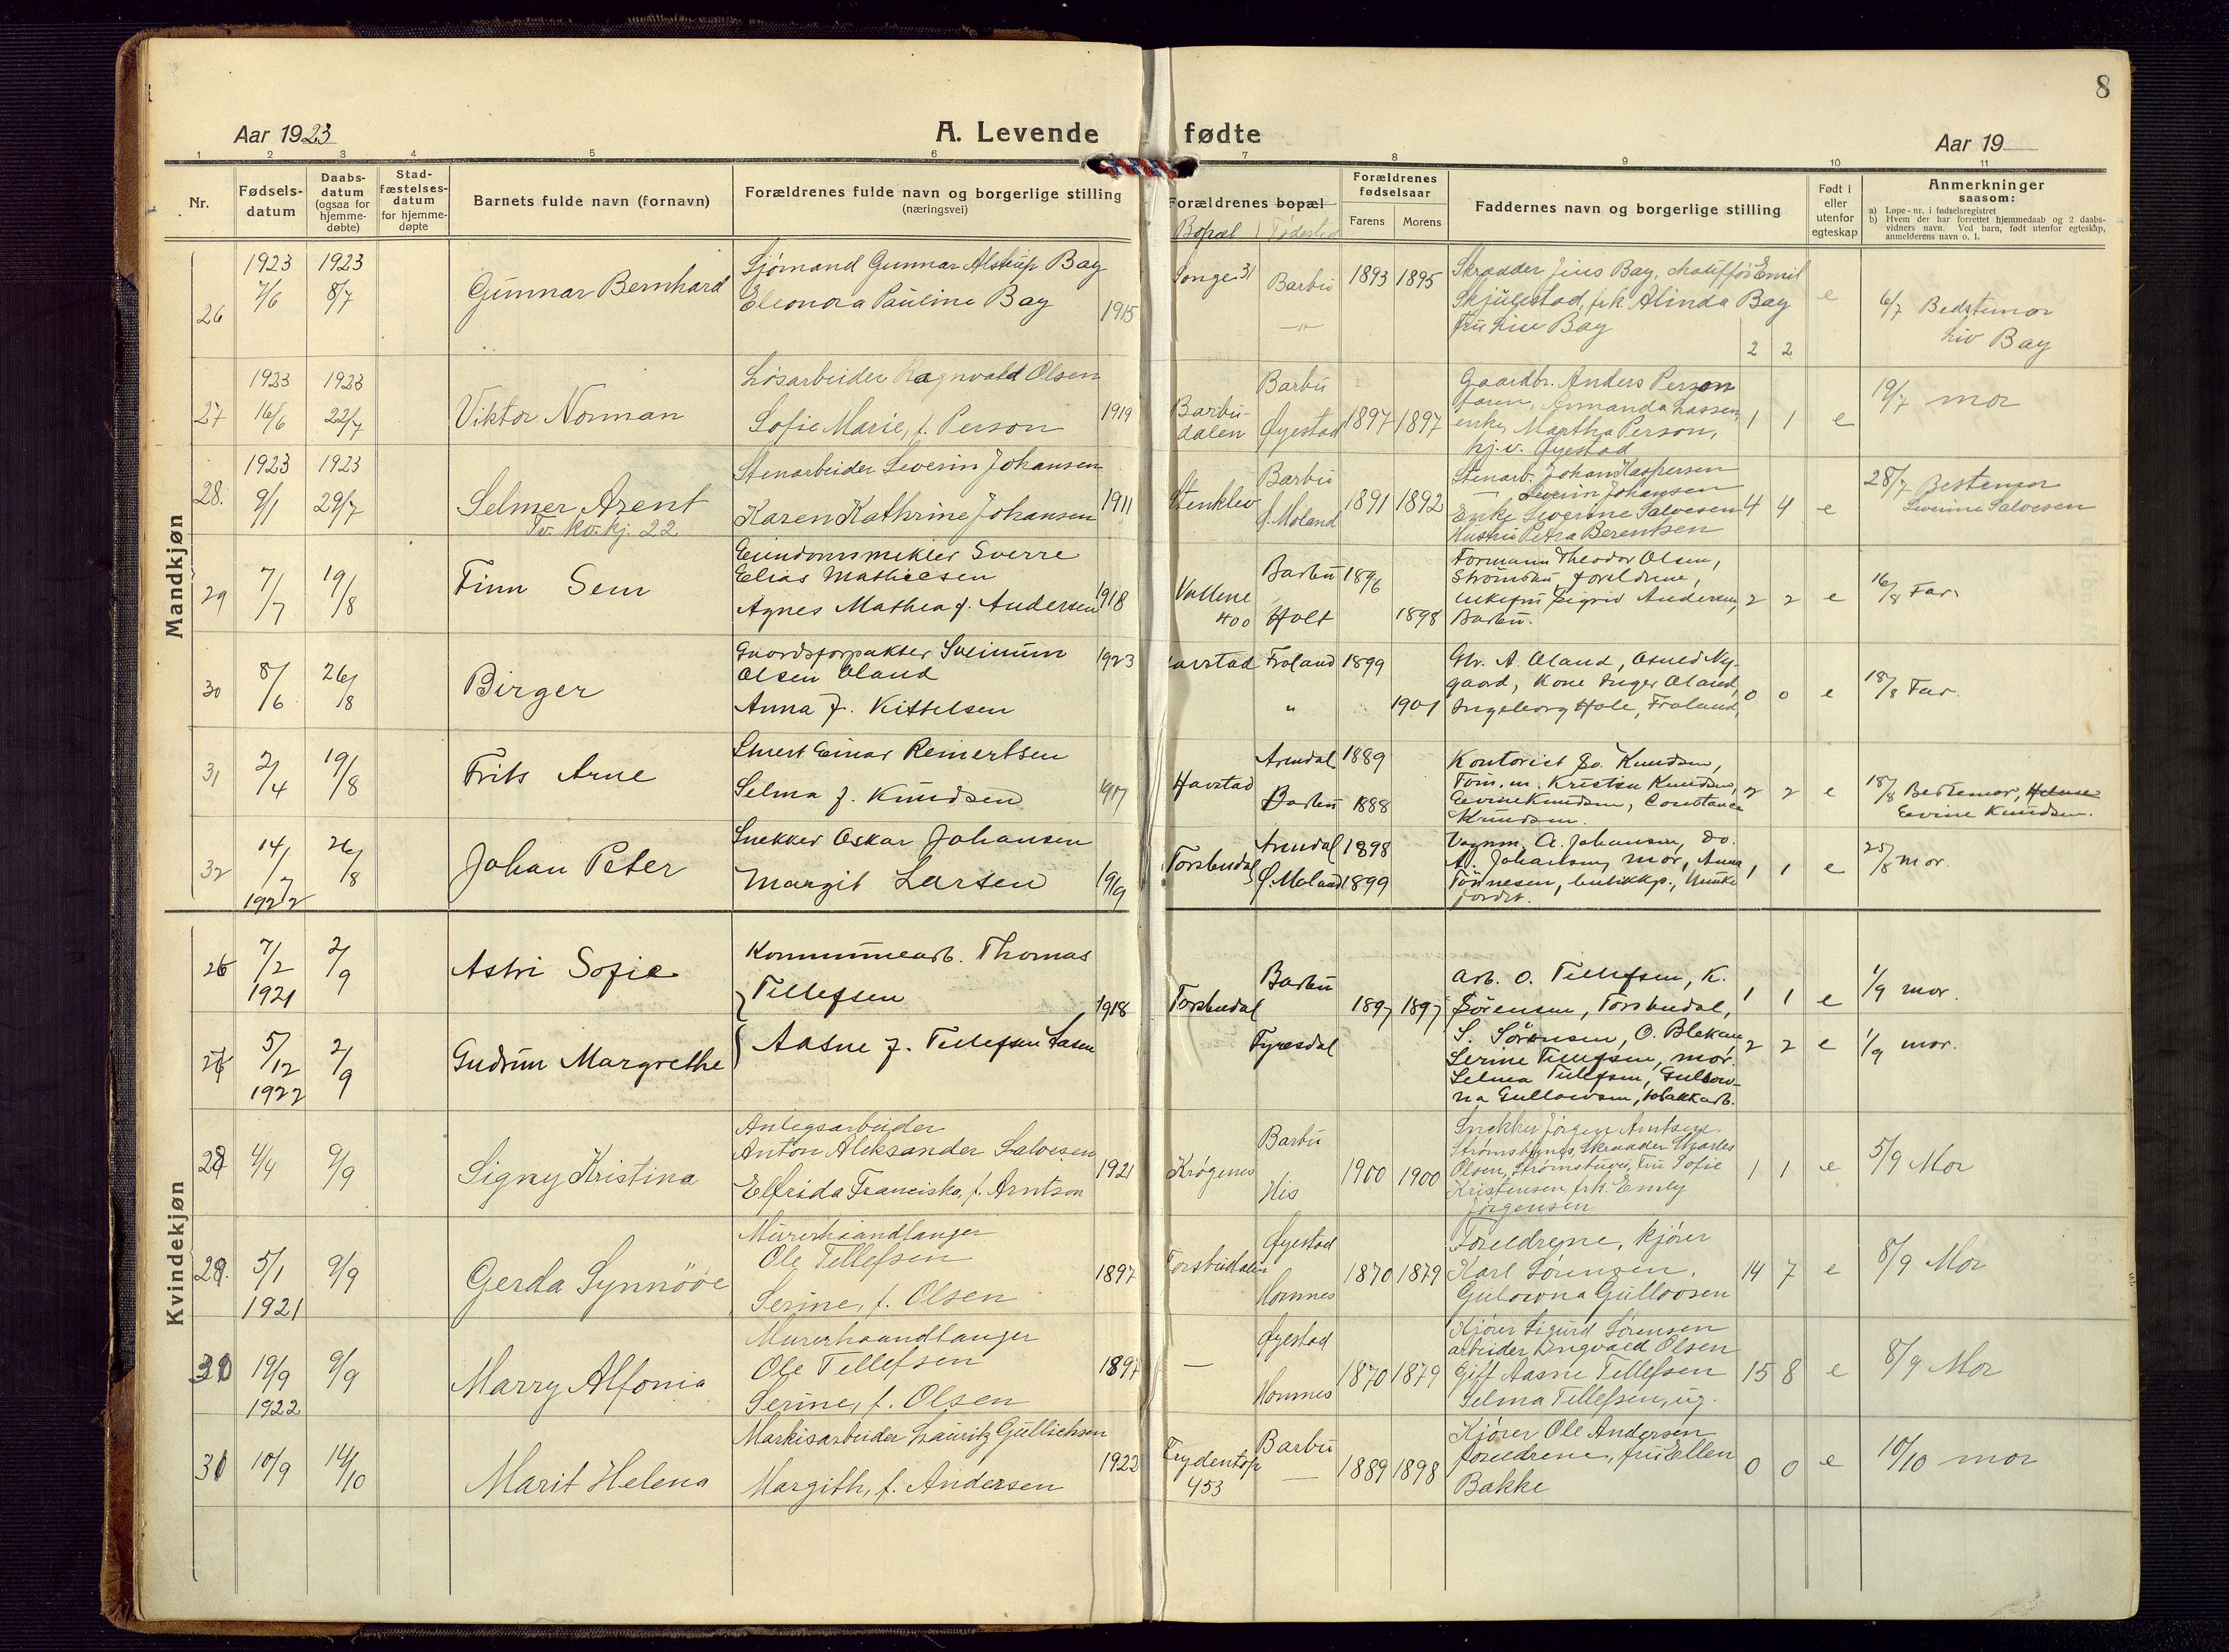 8
Aar 1923
A. Levende
fødte
Aar 19
1 2 3 4 5 6 7 8 9 10 11
Nr.
Fødsels-
datum
Daabs-
datum
(ogsaa for
hjemme-
døbte)
Stad-
fæstelses-
datum
for hjemme-
døpte
Barnets fulde navn (fornavn)
Forældrenes fulde navn og borgerlige stilling
(næringsvei)
Forældrenes bopæl
Bopæl | Fødested
Forældrenes
fødselsaar
Farens
Morens
Faddernes navn og borgerlige stilling
Født i
eller
utenfor
egteskap
Anmerkninger
saasom:
a) Løpe-nr. i fødselsregistret
b) Hvem der har forrettet hjemmedaab og 2 daabs-
vidners navn. Ved barn, født utenfor egteskap,
anmelderens navn o. l.
Mandkjøn
26
1923
7/6
1923
8/7
Gunnar Bernhard
Sjømand Gunnar Alstrup Bay
Eleonora Pauline Bay
1915
Songe 31
Barbu
—"—
1893 1895
Skrædder Jius Bay, chauffør Emil
Skjulestad, frk. Alinda Bay
Fru Liv Bay
2 2
e
6/7 Bedstemor
Liv Bay
27
1923
16/6
1923
22/7
Viktor Norman
Løsarbeider Ragnvald Olsen
Sofie Marie, f. Person
1919
Barbu-
dalen
Barbu
Øyestad
1897 1897
Gaardbr. Anders Person
faren, Amanda Lassen,
enke, Martha Person,
hj.v. Øyestad
1 1
e
19/7 mor
28.
1923
9/1
1923
29/7
Selmer Arent
Tv. kv.kj. 22
Stenarbeider Severin Johansen
Karen Kathrine Johansen
1911
Stenklev
Barbu
Ø. Moland
1891 1892
Stenarb. Johan Kaspersen
— Severin Johansen
Enke Severine Salvesen
Hustru Petra Berentsen
4 4
e
28/7 Bestemor
Severine Salvesen
29
7/7
19/8
Finn Sem
Eiendomsmekler Sverre
Elias Mathiesen
Agnes Mathea f. Andersen
1918
Vallene
400
Barbu
Holt
1896
1898
Formann Theodor Olsen,
Strømsbu, foreldrene,
enkefru Sigrid Andersen,
Barbu.
2 2
e
16/8 Far.
30
8/6
26/8
Birger
Gaardsforpakter Sveinum
Olsen Øland
Anna f. Kittelsen
1923
Froland
"
1899
1901
Gbr. A. Øland, Osuld Ny-
gaard, Kone Inger Øland,
Ingeborg Hole, Froland,
0 0
e
18/8 Far.
31
2/4
19/8
Frits Arne
Einar Reinertsen
Selma f. Knudsen
1917
Havstad
Arendal
Barbu
1889
1888
Kontorist Knudsen,
Tøm.m. Kristen Knudsen,
Eevine Knudsen, Constance
Knudsen.
2 2
e
18/8 Bestemor,
Eevine Knudsen.
32
14/7
1922
26/8
Johan Peter
Snekker Oskar Johansen
Margit Larsen
1919
Torsbudal
Arendal
Ø. Moland
1898
1899
Vognm. A. Johansen, do.
A. Johansen, mor, Anna
Tønnesen, butikkp., Munke
jordet.
1 1
e
25/8 mor.
Kvindekjøn
26
7/2
1921
2/9
Astri Sofie
Kommunearb. Thomas
Tellefsen
1918
Torsbudal
Barbu
1897 1897
Arb. O. Tellefsen, K.
Sørensen, Torsbudal,
1 1
e
1/9 mor.
27
5/12
1922
2/9
Gudrun Margrethe
Aasne f. Tellefsen
Fyresdal
S. Sørensen, O. Blekam
Serine Tellefsen, mor.
Selma Tellefsen, Gullow-
na Gullowsen, tobakkarb.
2 2
e
1/9 mor.
28
4/4
9/9
Signy Kristina
Anlegsarbeider
Anton Aleksander Salvesen
Elfrida Franciska, f. Arntsen
1921
Krøgenes
Barbu
His
1900 1900
Snekker Jørgen Arntsen,
Strømsbunes, Skrædder Charles
Olsen, Strømsbunes, Fru Sofie
Kristensen, frk. Emily
Jørgensen
1 1
e
5/9 Mor
29.
5/1
1921
9/9
Gerda Synnöve
Murerhaandlanger
Ole Tellefsen
Serine, f. Olsen
1897
Torsbudalen
Øyestad
Hornnes
1870 1879
Foreldrene, kjører
Karl Sørensen,
Gulowna Gullovsen
14 7
e
8/9 Mor
30
19/9
1922
9/9
Marry Alfonia
Murerhaandlanger
Ole Tellefsen
Serine, f. Olsen
1897
—
Øyestad
Hornnes
1870 1879
Kjører Sigurd Sørensen
arbeider Ingvald Olsen
Gift Aasne Tellefsen
Selma Tellefsen, ug.
15 8
e
8/9 Mor
31
10/9
14/10
Marit Helena
Markisarbeider Lauritz Gullichsen
Margith, f. Andersen
1922
Frydentop
453
Barbu
—
1889 1898
Kjører Ole Andersen
foreldrene, fru Ellen
Bakke
0 0
e
10/10 mor